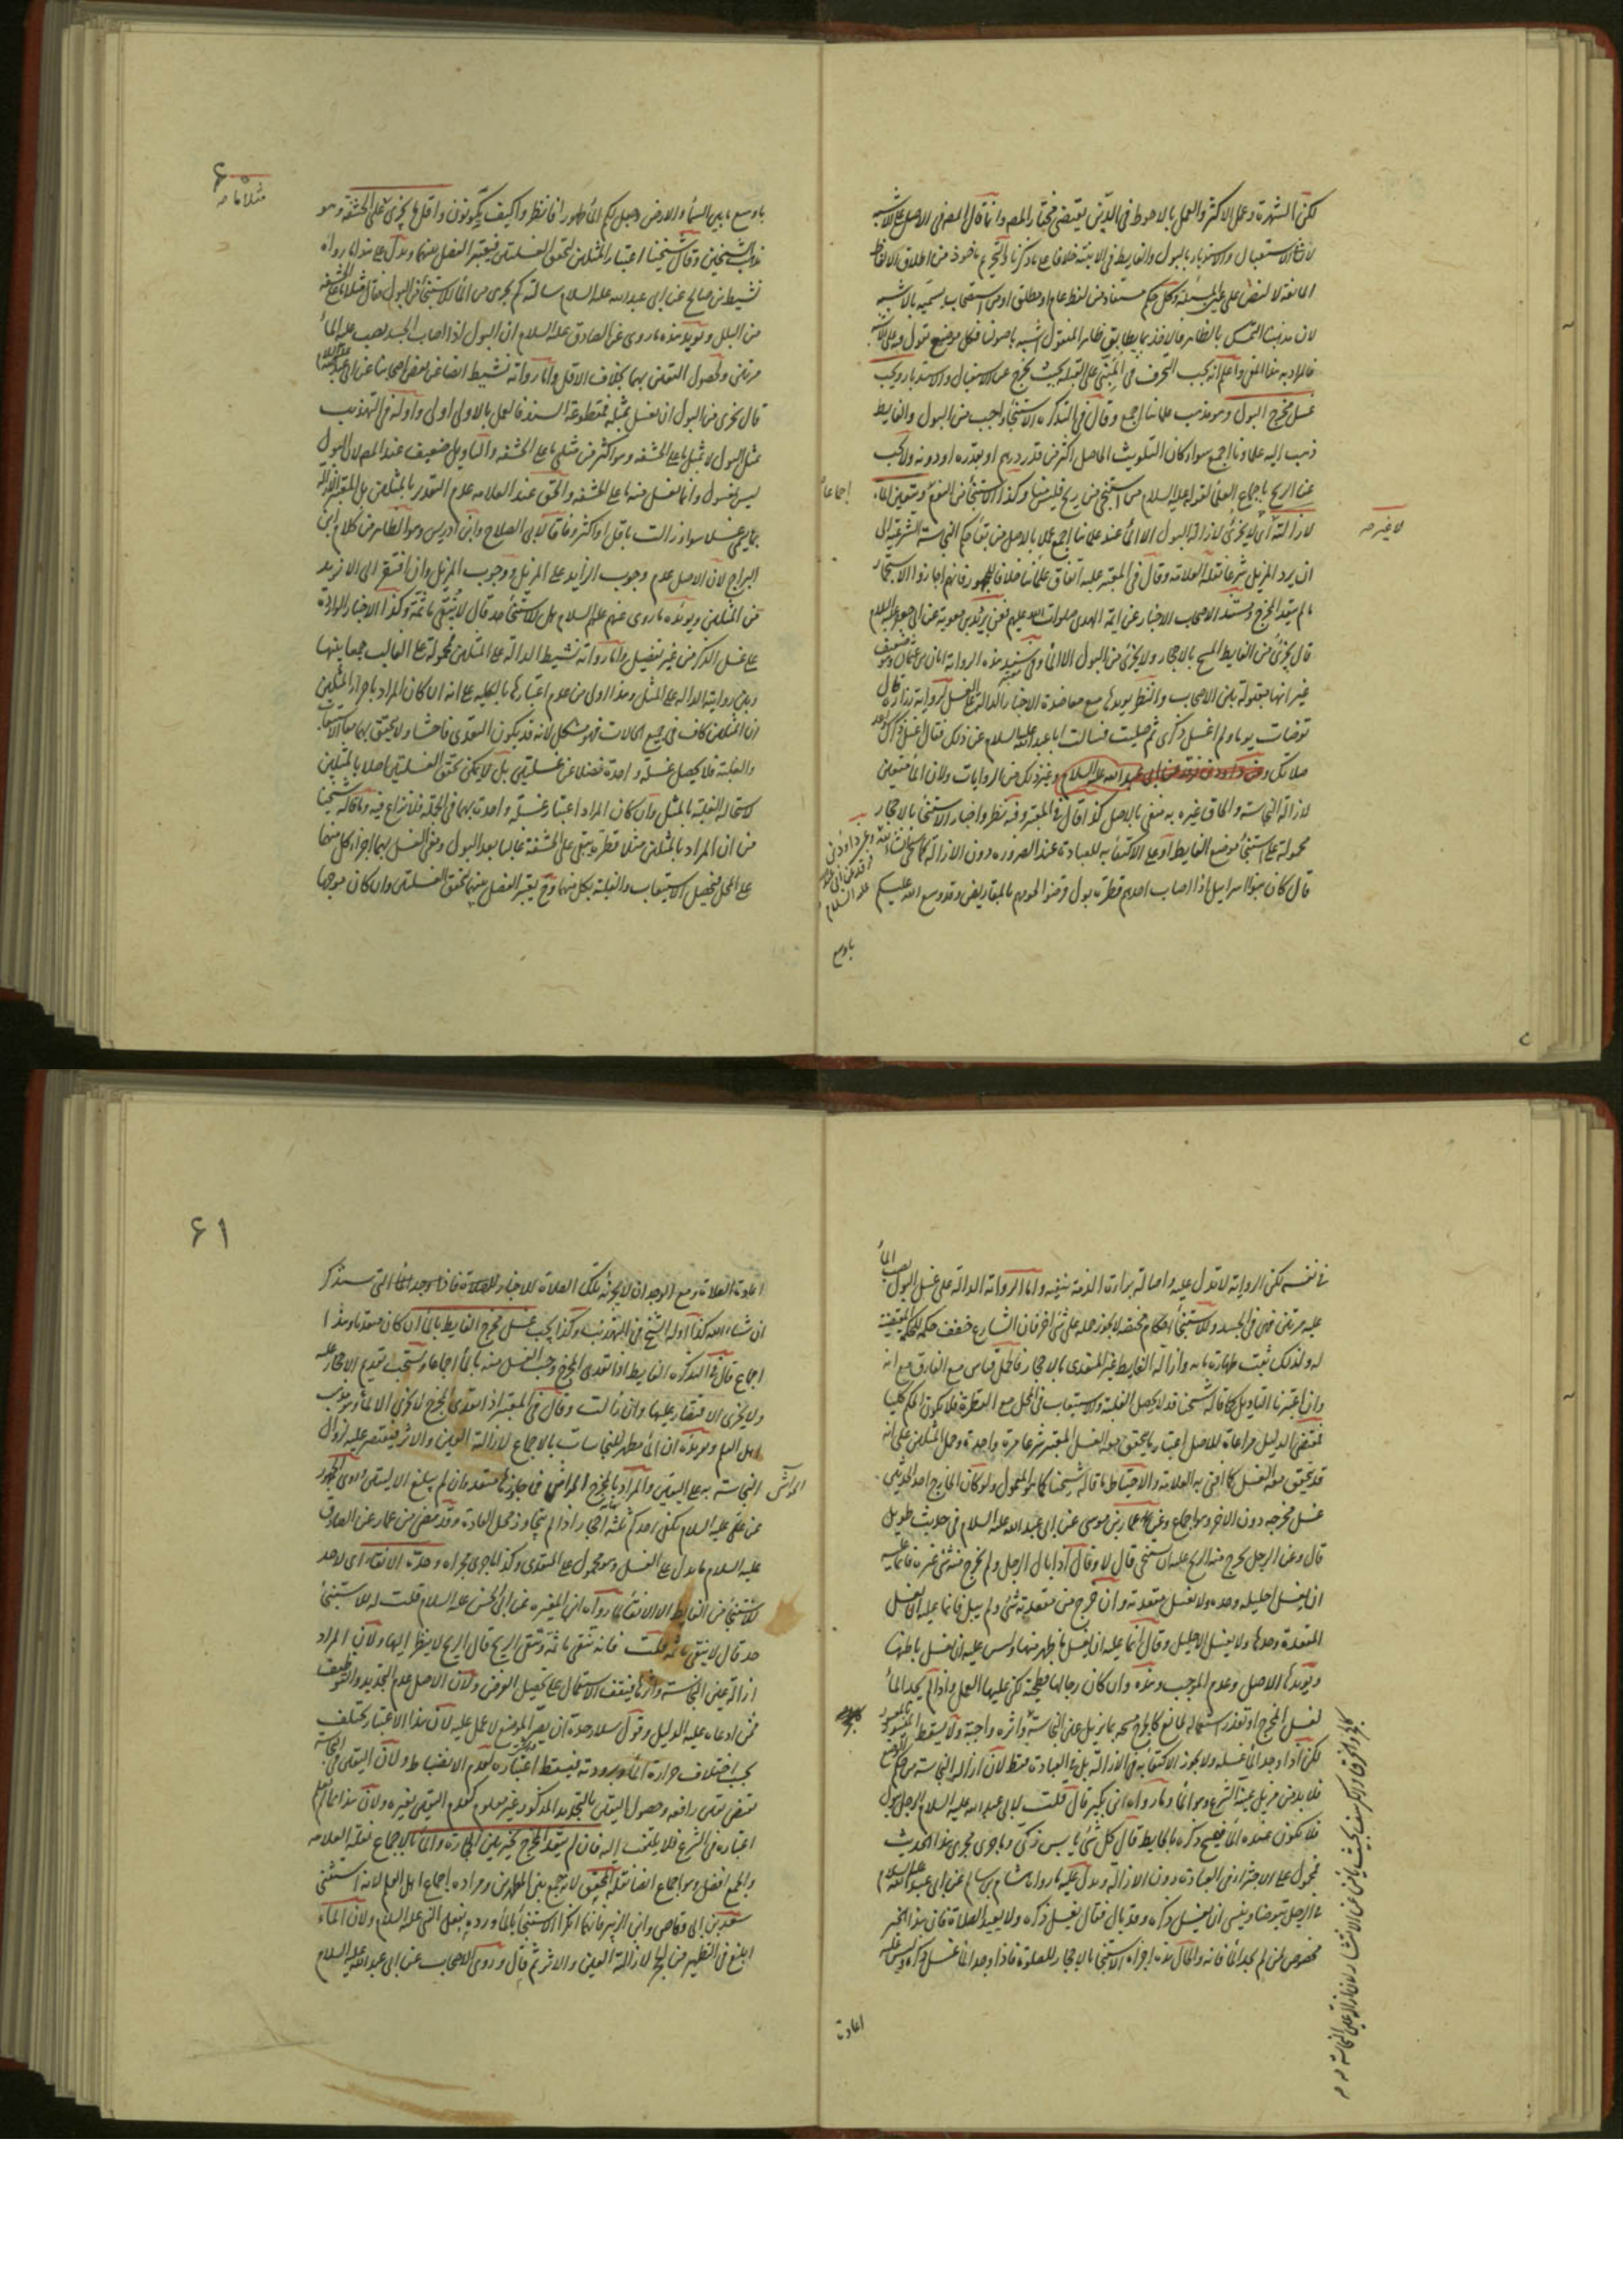 لكن الشهرة وعمل الاكثر والعمل بالاحوط في الدين يقتضي مختار المصر وانما قال المصر في الاصل على الاشبه
لان الاستقبال والاستدبار بالبول والغايط في الابنية خلافا
المانعة لا لنص على عين المسئلة وكل حكم مستفاد من لفظ عام او مطلق او من استصحاب يسمى بالاشبه
لان مذهبنا التمسك بالظاهر فالاخذ بما يطابق ظاهر المنقول اشبه باصولنا فكل موضع نقول فيه على الاشبه
فالمراد به هذا المعنى واعلم انه يجب التحرف في المبني على القبلة بحيث يخرج عن الاستقبال والاستدبار ويجب
غسل مخرج البول وهو مذهب علمائنا اجمع وقال في التذكرة الاستنجاء واجب من البول والغايط
ذهب اليه علماؤنا اجمع سواء كان التلويث الحاصل اكثر من قدر درهم او بقدره او دونه ولا يجب
عن الريح باجماع العلماء لقوله عليه السلام من استنجى من ريح فليس منا وكذا الاستنجاء من النوم ويتعين الماء
اجماعا
لازالته اى لا يجزي لازالة البول الا الماء عند علمائنا اجمع عملا بالاصل من بقاء حكم النجاسة الشرعية الى
لا غير صح
ان يرد المزيل شرعا نقله العلامة وقال في المعتبر عليه اتفاق علمائنا خلافا للجمهور فانهم اجازوا الاستجمار
ما لم يتعد المخرج ومستند الاصحاب الاخبار عن ائمة الهدى صلوات الله عليهم فعن بريد بن معوية عن ابي جعفر عليه السلام
قال يجزي من الغايط المسح بالاحجار ولا يجزي من البول الا الماء وفي سند هذه الرواية ابان بن عثمان وهو ضعيف
غير انها مقبولة بين الاصحاب والنظر يؤيدها مع معاضدة الاخبار الدالة على الغسل كرواية زرارة قال
توضات يوما ولم اغسل ذكري ثم صليت فسالت ابا عبد الله عليه السلام عن ذلك فقال اغسل ذكرك واعد
صلاتك وعن داود بن فرقد عن ابي عبد الله عليه السلام وغير ذلك من الروايات ولان الماء متعين
لازالة النجاسة والحاق غيره به منفي بالاصل كذا قال في المعتبر وفيه نظر واخبار الاستنجاء بالاحجار
محمولة على استنجاء موضع الغايط او على الاكتفاء به للعبادة عند الضرورة دون الازالة
وعن داود بن فرقد عن ابي عبد الله عليه السلام
قال كان بنو اسرائيل اذا اصاب احدهم قطرة بول قرضوا لحومهم بالمقاريض وقد وسع الله عليكم
باوسع
۶۰
باوسع ما بين السماء والارض وجعل لكم الماء طهورا فانظروا كيف تكونون واقل ما يجزي مثلا ما على الحشفة وهو
مثلا ما صح
مذهب الشيخين وقال شيخنا اعتبار المثلين لتحقق الغسلتين فيعتبر الفصل بينهما ويدل على هذا ما رواه
نشيط بن صالح عن ابي عبد الله عليه السلام سالته كم يجزي من الماء للاستنجاء من البول فقال مثلا ما على الحشفة
من البلل ويؤيد هذه ما روي عن الصادق عليه السلام ان البول اذا اصاب الجسد يصب عليه الماء
مرتين ولحصول اليقين بهما بخلاف الاقل واما رواية نشيط ايضا عن بعض اصحابنا عن ابي عبد الله عليه السلام
قال يجزي من البول ان يغسل بمثله فمقطوعة السند فالعمل بالاولى اولى واوله في التهذيب
بمثل البول لا بمثل ما على الحشفة وهو اكثر من مثلي ما على الحشفة والتاويل ضعيف عند المصر لان البول
ليس بمغسول وانما يغسل منه ما على الحشفة والحق عند العلامة عدم التقدير بالمثلين بل المعتبر الازالة
بما يسمى غسلا سواء زالت باقل او اكثر وفاقا لابي الصلاح وابن ادريس وهو الظاهر من كلام ابن
البراج لان الاصل عدم وجوب الزايد على المزيل ووجوب المزيل وان افتقر الى الازيد
من المثلين ويؤيده ما روي عنهم عليهم السلام هل للاستنجاء حد قال لا ينقى ما ثمة وكذا الاخبار الواردة
على غسل الذكر من غير تفصيل واما رواية نشيط الدالة على المثلين محمولة على الغالب جمعا بينها
وبين رواية الدالة على المثل وهذا اولى من عدم اعتبارها بالكلية على انه ان كان المراد باجزاء المثلين
ان المثلين كاف في جميع الحالات فهو مشكل لانه قد يكون التعدي فاحشا ولا يتحقق بهما معا الاستيعاب
والغلبة فلا يحصل غسلة واحدة فضلا عن غسلتين بل لا يمكن تحقق الغسلتين اصلا بالمثلين
لاستحالة الغلبة بالمثل وان كان المراد اعتبار غسلة واحدة بهما في الجملة فلا نزاع فيه وما قاله شيخنا
من ان المراد بالمثلين مثلا قطرة تبقى على الحشفة غالبا بعد البول ومعنى الغسل بهما اجراء كل منهما
على المحل فيحصل الاستيعاب والغلبة بكل منهما وح يعتبر الفصل بينهما لتحقق الغسلتين وان كان موجها
في نفسه لكن الرواية لا تدل عليه واصالة براءة الذمة تنفيه واما الرواية الدالة على غسل البول بصب الماء
عليه مرتين فهي في الجسد وللاستنجاء احكام مختصة لا يجوز حمله على شيء اخر فان الشارع خفف حكمه
له ولذلك ثبت طهارة مائه وازالة الغايط غير المتعدي بالاحجار فالحمل قياس مع الفارق مع انه
وان اعتبرنا التاويل كما قاله شيخنا قد لا يحصل الغلبة والاستيعاب في المحل مع القطرة فلا يكون الحكم كليا
فمقتضى الدليل مراعاة للاصل اعتبار ما يتحقق معه الغسل المعتبر شرعا مرة واحدة وحمل المثلين على انه
قد يتحقق معه الغسل كما افتى به العلامة والاحتياط ما قاله شيخنا كما هو المعمول ولو كان الخارج احد الحدثين
غسل مخرجه دون الاخر وهو اجماع وعن عمار بن موسى عن ابي عبد الله عليه السلام في حديث طويل
قال وعن الرجل يخرج منه الريح عليه ان يستنجي قال لا وقال اذا بال الرجل ولم يخرج منه شيء غيره فانما عليه
ان يغسل احليله وحده ولا يغسل مقعدته وان خرج من مقعدته شيء ولم يبل فانما عليه ان يغسل
المقعدة وحدها ولا يغسل الاحليل وقال انما عليه ان يغسل ما ظهر منها وليس عليه ان يغسل باطنها
ويؤيدها الاصل وعدم الموجب وهذه وان كان رجالها فطحية لكن عليها العمل واذا لم يجد الماء
لغسل المخرج او تعذر استعماله لمانع كالجرح مسحه بما يزيل عين النجاسة واثره واجبة ولا يسقط الميسور بالمعسور
لكن اذا وجد الماء غسله ولا يجوز الاكتفاء به في الازالة بل في العبادة فقط لان ازالة النجاسة من حكم الشرع
فلا بد من مزيل عينه الشرع وهو الماء وما رواه ابن بكير قال قلت لابي عبد الله عليه السلام الرجل يبول
فلا يكون عنده الماء فيمسح ذكره بالحايط قال كل شيء يابس زكي وما جرى مجرى هذا الحديث
محمول على الاجتزاء في العبادة دون الازالة ويدل عليه ما رواه هشام بن سالم عن ابي عبد الله عليه السلام
في الرجل يتوضا وينسى ان يغسل ذكره وقد بال فقال يغسل ذكره ولا يعيد الصلاة فان هذا الخبر
مخصوص بمن لم يجد الماء فانه والحال هذه اجزاه الاستنجاء بالاحجار للصلوة فاذا وجد الماء غسل ذكره وليس عليه
اعادة
۶۱
اعادة الصلاة ومع الوجدان لا يجزيه تلك الصلاة للاخبار التي سنذكر
ان شاء الله كذا اوله الشيخ في التهذيب وكذا يجب غسل مخرج الغايط بالماء ان كان متعديا وهذا
اجماع قال في التذكرة الغايط اذا تعدى المخرج وجب الغسل منه بالماء اجماعا ويستحب تقديم الاحجار عليه
ولا يجزي الاقتصار عليها وان زالت وقال في المعتبر اذا تعدى المخرج لا يجزي الا الماء وهو مذهب
اهل العلم ويؤيده ان الماء مطهر للنجاسات بالاجماع لازالة العين والاثر فيقتصر عليه لزوال
النجاسة به على اليقين والمراد بالمخرج الحواشي فما جاوزها متعد وان لم يبلغ الاليتين وروى الجمهور
الحواشي
عن علي عليه السلام يكفي احدكم ثلثة احجار اذا لم يتجاوز محل العادة وقد مضى من عمار عن الصادق
عليه السلام ما يدل على الغسل وهو محمول على المتعدي وكذا ما جرى مجراه وحده الانقاء اى لا حد
للاستنجاء من الغايط الا الانقاء لما رواه ابن المغيرة عن ابي الحسن عليه السلام قلت له للاستنجاء
حد قال لا ينقى ما ثمة قلت فانه ينقى ما ثمة ويبقى الريح قال الريح لا ينظر اليها ولان المراد
ازالة عين النجاسة واثرها فيقف الاستعمال على تحصيل الغرض ولان الاصل عدم التحديد والتوظيف
فمن ادعاه عليه الدليل وقول سلار حده ان يصر الموضع لا عمل عليه لان هذا الاعتبار يختلف
بحسب اختلاف حرارة الماء وبرودته فيسقط اعتباره لعدم الانضباط ولان اليقين في النجاسة
يقتضي يقين رافعه وحصول اليقين بالتحديد المذكور غير معلوم كعدم اليقين بغيره ولان هذا ما لم يعلم
اعتباره في الشرع فلا يلتفت اليه فان لم يتعد المخرج تخير بين الحجارة والماء بالاجماع نقله العلامه
والجمع افضل وهو اجماع ايضا نقله المحقق لانه جمع بين المطهرين ومراده اجماع اهل العلم لانه استثنى
سعد بن ابي وقاص وابن الزبير فانهما انكرا الاستنجاء بالماء ورده بفعل النبي عليه السلام ولان الماء
ابلغ في التطهير من الحجر لازالة العين والاثر ثم قال وروى الاصحاب عن ابي عبد الله عليه السلام